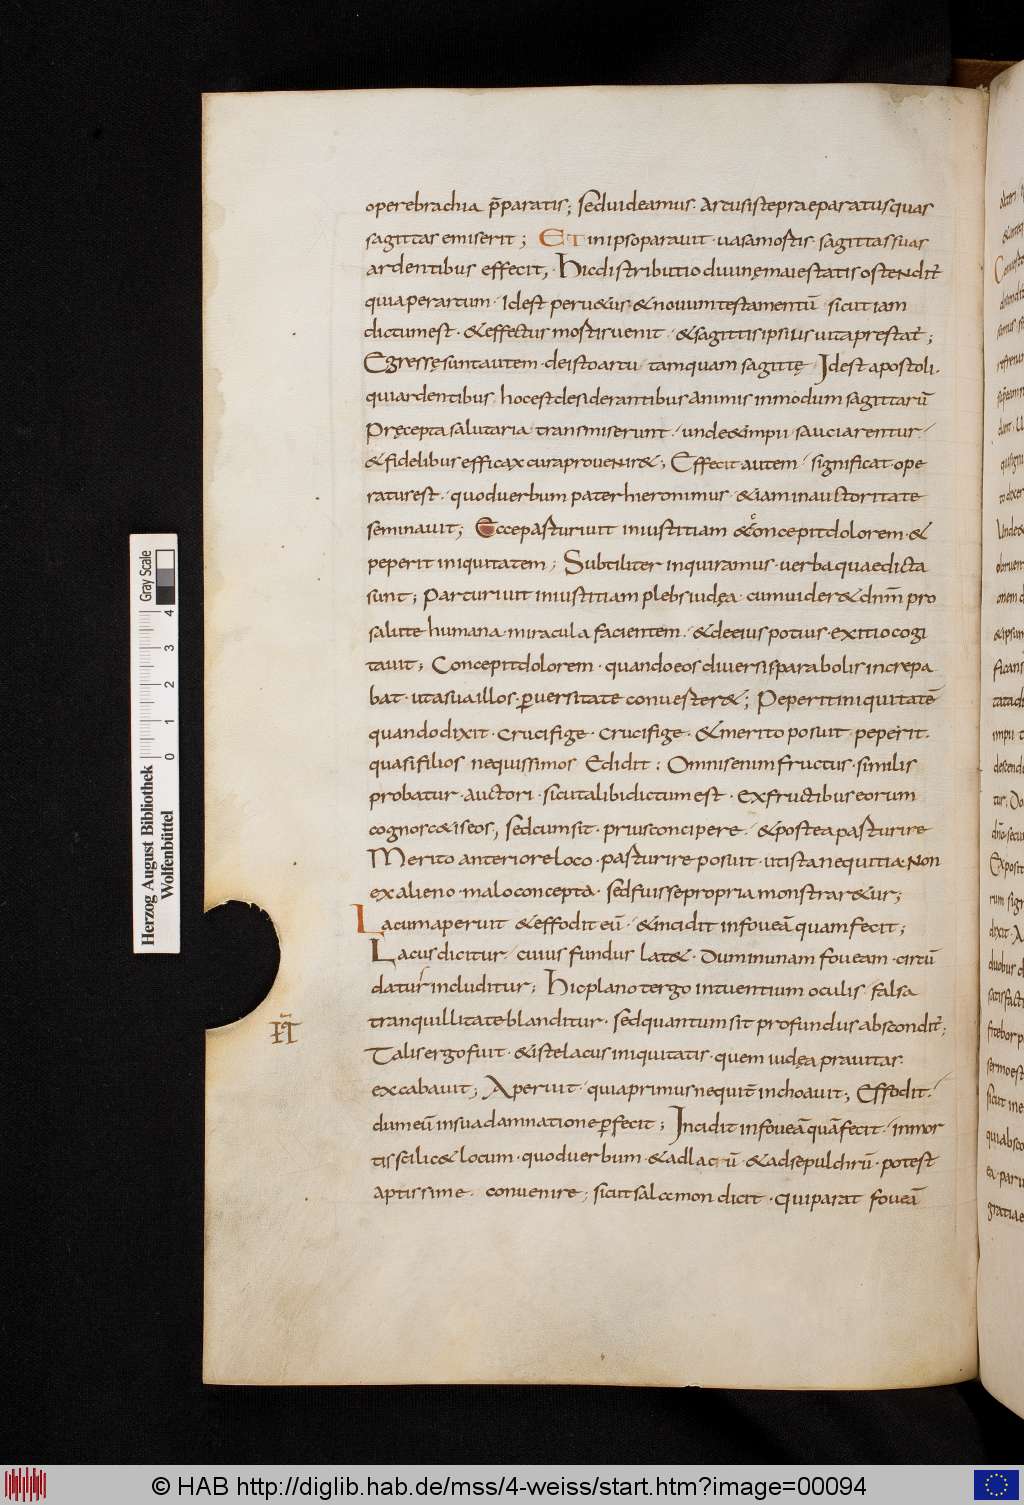 opere brachia p̄paratis; Sed uideamus. arcus iste praeparatus quas
sagittas emiserit; ET in ipso parauit. uasa mortis. sagittas suas
ardentibus effecit; Hic distributio diuinę maiestatis ostendit̄
quia per arcum. Idest per u&us. & nouum testamentū sicut iam
dictum est. & effectus mortis uenit. & sagittis ipsius uita prestat̄;
Egressę sunt autem. de isto arcu. tamquam sagittę. Idest apostoli.
qui ardentibus. hoc est desiderantibus animis in modum sagittarū
Pręcepta salutaria transmiserunt. unde & impii. sauciarentur.
& fidelibus efficax cura proueniR&; Effecit autem. significat ope
ratus est. quod uerbum pater hieronimus. & iam in auctoritate
seminauit; Ecce parturiuit iniustitiam & concepit dolorem. &
peperit iniquitatem; Subtiliter inquiramus. uerba quae dicta
sunt; Parturiuit iniustitiam plebs iudęa. cum uider& dnm̄ pro
salute humana. miracula facientem. & de eius potius. exitio cogi
tauit; Concepit dolorem. quando eos diuersis parabolis increpa
bat. ut a sua illos. ꝑuersitate conuerter&; Peperit iniquitatē
quando dixit. crucifige. crucifige. & merito posuit. peperit.
quasi filios nequissimos edidit: Omnis enim fructus. similis
probatur. auctori. sicut alibi dictum est. ex fructibus eorum
cognosc&is eos; sed cum sit. prius concipere. & postea parturire
Merito anteriore loco. parturire posuit. ut ista nequitia. non
ex alieno. malo concepta. sed fuisse propria monstrar&ur;
Lacum aperuit & effodit eū. & incidit in foueā quam fecit;
Lacus dicitur. cuius fundus lat&. Dum in unam foueam. circū
datur includitur; Hic plano tergo intuentium oculis. falsa
tranquillitate blanditur. sed quantum sit profundus abscondit̄;
Talis ergo fuit. & iste lacus iniquitatis. quem iudęa prauitas.
excabauit; Aperuit. quia primus nequit̄ inchoauit; Effodit.
dum eū in sua damnatione ꝑfecit; Incidit in foueā quā fecit. in mor
tis scilic& locum. quod uerbum. & ad lacū. & ad sepulchrū. potest
aptissime. conuenire; sicut salomon dicit. qui parat foueā
Herzog August Bibliothek
Wolfenbüttel
0 1 2 3 4
Gray Scale
© HAB http://diglib.hab.de/mss/4-weiss/start.htm?image=00094